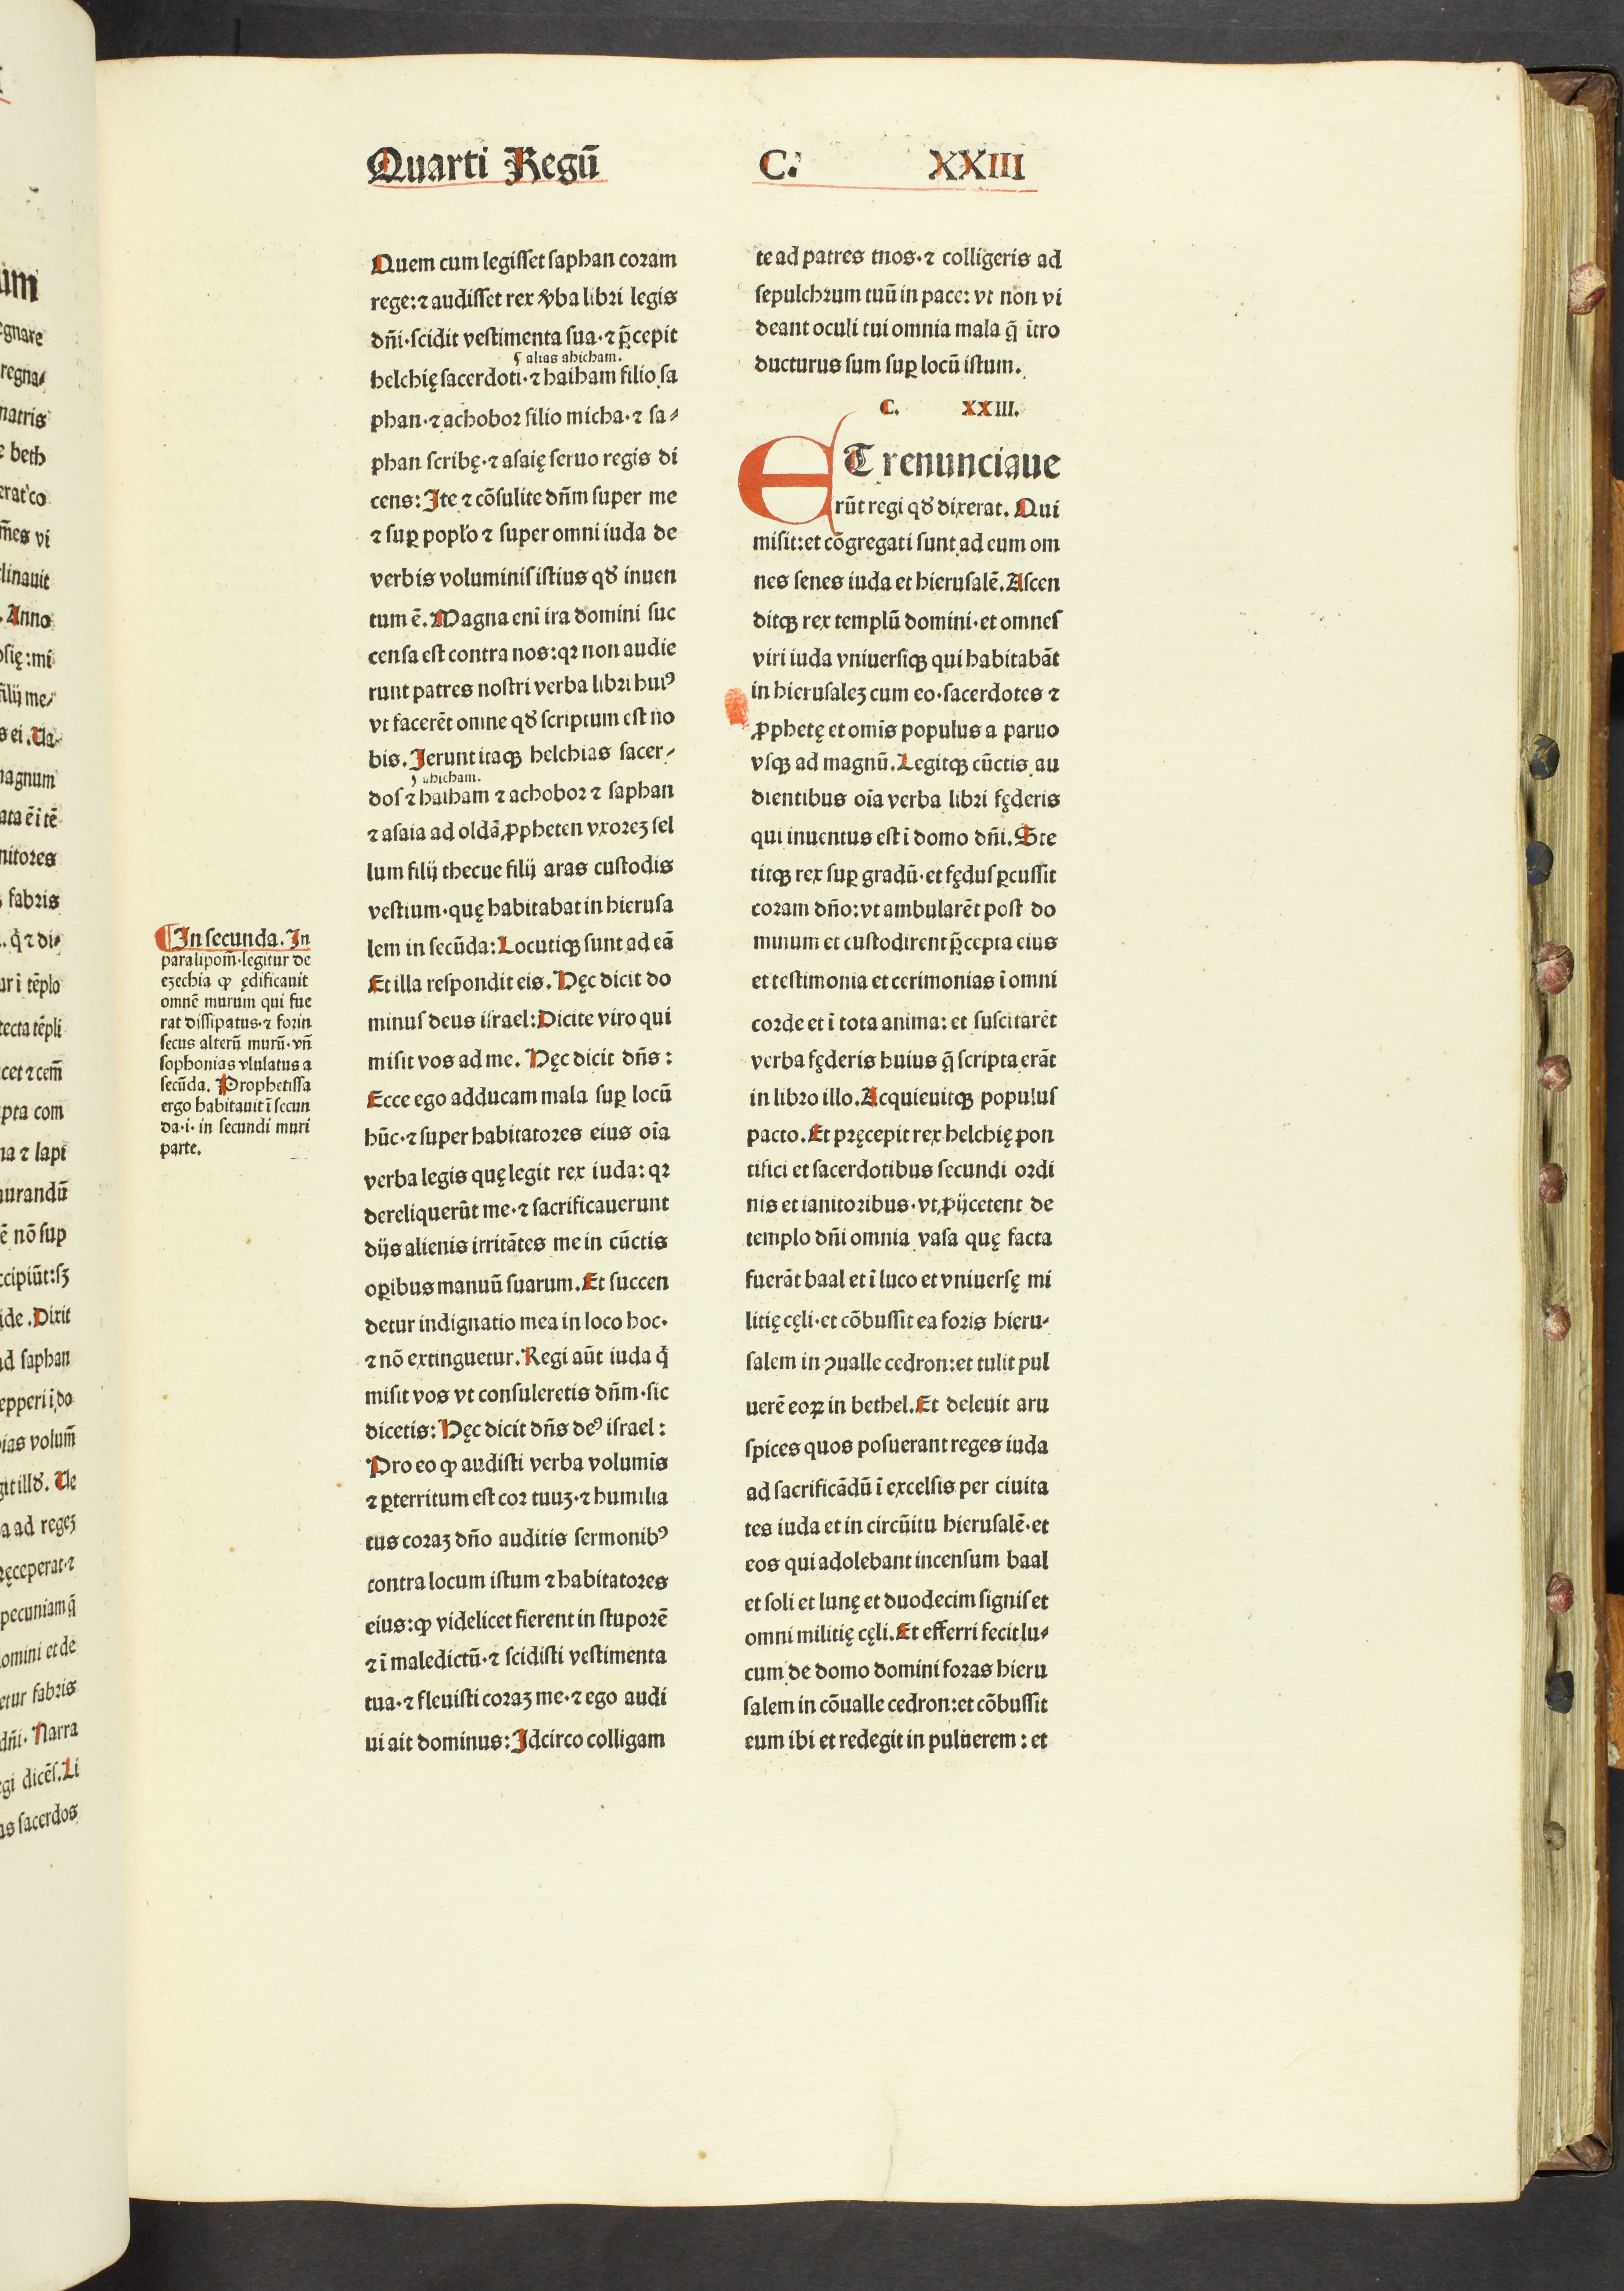 Quarti Regū C. XXIII
Quem cum legiſſet ſaphan coꝛam
rege:⁊ audiſſet rex v̆ba libꝛi legis
dn̄i·ſcidit veſtimenta ſua·⁊ p̄cepit
alias ahicham.
helchię ſacerdoti·⁊ haiham filio ſa
phan·⁊ achoboꝛ filio micha·⁊ ſa⸗
phan ſcribę·⁊ aſaię ſeruo regis di
cens: Ite ⁊ cōſulite dn̄m ſuper me
⁊ suꝑ popl'o ⁊ ſuper omni iuda de
verbis voluminiſ iſtius qď inuen
tum ē. Magna eni ira domini ſuc
cenſa eſt contra nos:qꝛ non audie
runt patres noſtri verba libꝛi huiꝰ
vt facerēt omne qď ſcriptum eſt no
bis. Ierunt itaqꝫ helchias ſacer⸗
ahicham.
doſ ⁊ haiham ⁊ achoboꝛ ⁊ ſaphan
⁊ aſaia ad oldā ꝓpheten vxoꝛeꝫ ſel
lum filij thecue filij aras cuſtodis
veſtium·quę habitabat in hieruſa
lem in ſecūda: Locutiqꝫ ſunt ad eā
Et illa reſpondit eis. Hęc dicit do
minuſ deus iſrael: Dicite viro qui
miſit vos ad me. Hęc dicit dn̄s :
Ecce ego adducam mala ſuꝑ locū
hūc·⁊ ſuper habitatoꝛes eius oīa
verba legis quę legit rex iuda: qꝛ
dereliquerūt me·⁊ ſacrificauerunt
dijs alienis irritātes me in cūctis
oꝑibus manuū ſuarum. Et ſuccen
detur indignatio mea in loco hoc·
⁊ nō extinguetur. Regi aūt iuda q̇
miſit vos vt conſuleretis dn̄m·ſic
dicetis: Hęc dicit dn̄s deꝰ iſrael :
Pro eo ꝙ audiſti verba volumīs
⁊ ꝑterritum eſt coꝛ tuuꝫ·⁊ humilia
tus coꝛaꝫ dn̄o auditis ſermonibꝰ
contra locum iſtum ⁊ habitatoꝛes
eius:ꝙ videlicet fierent in ſtupoꝛē
⁊ ī maledictū·⁊ ſcidiſti veſtimenta
tua·⁊ fleuiſti coꝛaꝫ me·⁊ ego audi
ui ait dominus: Idcirco colligam
In ſecunda. In
paralipom̄·legitur de
ezechia ꝙ ędificauit
omnē murum qui fue
rat diſſipatus·⁊ foꝛin
ſecus alterū murū·vn̄
ſophonias vlulatus a
ſecūda. Prophetiſſa
ergo habitauit ī ſecun
da·i· in ſecundi muri
parte.
te ad patres tuos·⁊ colligeris ad
ſepulchꝛum tuū in pace: vt non vi
deant oculi tui omnia mala q̄ ītro
ducturus ſum ſuꝑ locū iſtum.
C. XXIII.
ET renunciaue
rūt regi qď dixerat. Qui
miſit:et cōgregati ſunt ad eum om
nes ſenes iuda et hieruſalē. Aſcen
ditqꝫ rex templū domini·et omneſ
viri iuda vniuerſiqꝫ qui habitabāt
in hieruſaleꝫ cum eo·ſacerdotes ⁊
ꝓphetę et omīs populus a paruo
vſqꝫ ad magnū. Legitqꝫ cūctis au
dientibus oīa verba libꝛi fęderis
qui inuentus eſt ī domo dn̄i. Ste
titqꝫ rex ſuꝑ gradū·et fęduſ ꝑcuſſit
coram dn̄o:vt ambularēt poſt do
minum et cuſtodirent p̄cepta eius
et teſtimonia et cerimonias ī omni
coꝛde et ī tota anima: et ſuſcitarēt
verba fęderis huius q̄ ſcripta erāt
in libꝛo illo. Acquieuitqꝫ populuſ
pacto. Et pręcepit rex helchię pon
tifici et ſacerdotibus ſecundi oꝛdi
nis et ianitoꝛibus·vt ꝓijcetent de
templo dn̄i omnia vaſa quę facta
fuerāt baal et ī luco et vniuerſę mi
litię cęli·et cōbuſſit ea foꝛis hieru⸗
ſalem in ꝯualle cedron:et tulit pul
uerē eoꝝ in bethel. Et deleuit aru
ſpices quos poſuerant reges iuda
ad ſacrificādū ī excelſis per ciuita
tes iuda et in circūitu hieruſalē·et
eos qui adolebant incenſum baal
et ſoli et lunę et duodecim ſigniſ et
omni militię cęli. Et efferri fecit lu⸗
cum de domo domini foras hieru
ſalem in cōualle cedron:et cōbuſſit
eum ibi et redegit in puluerem : et